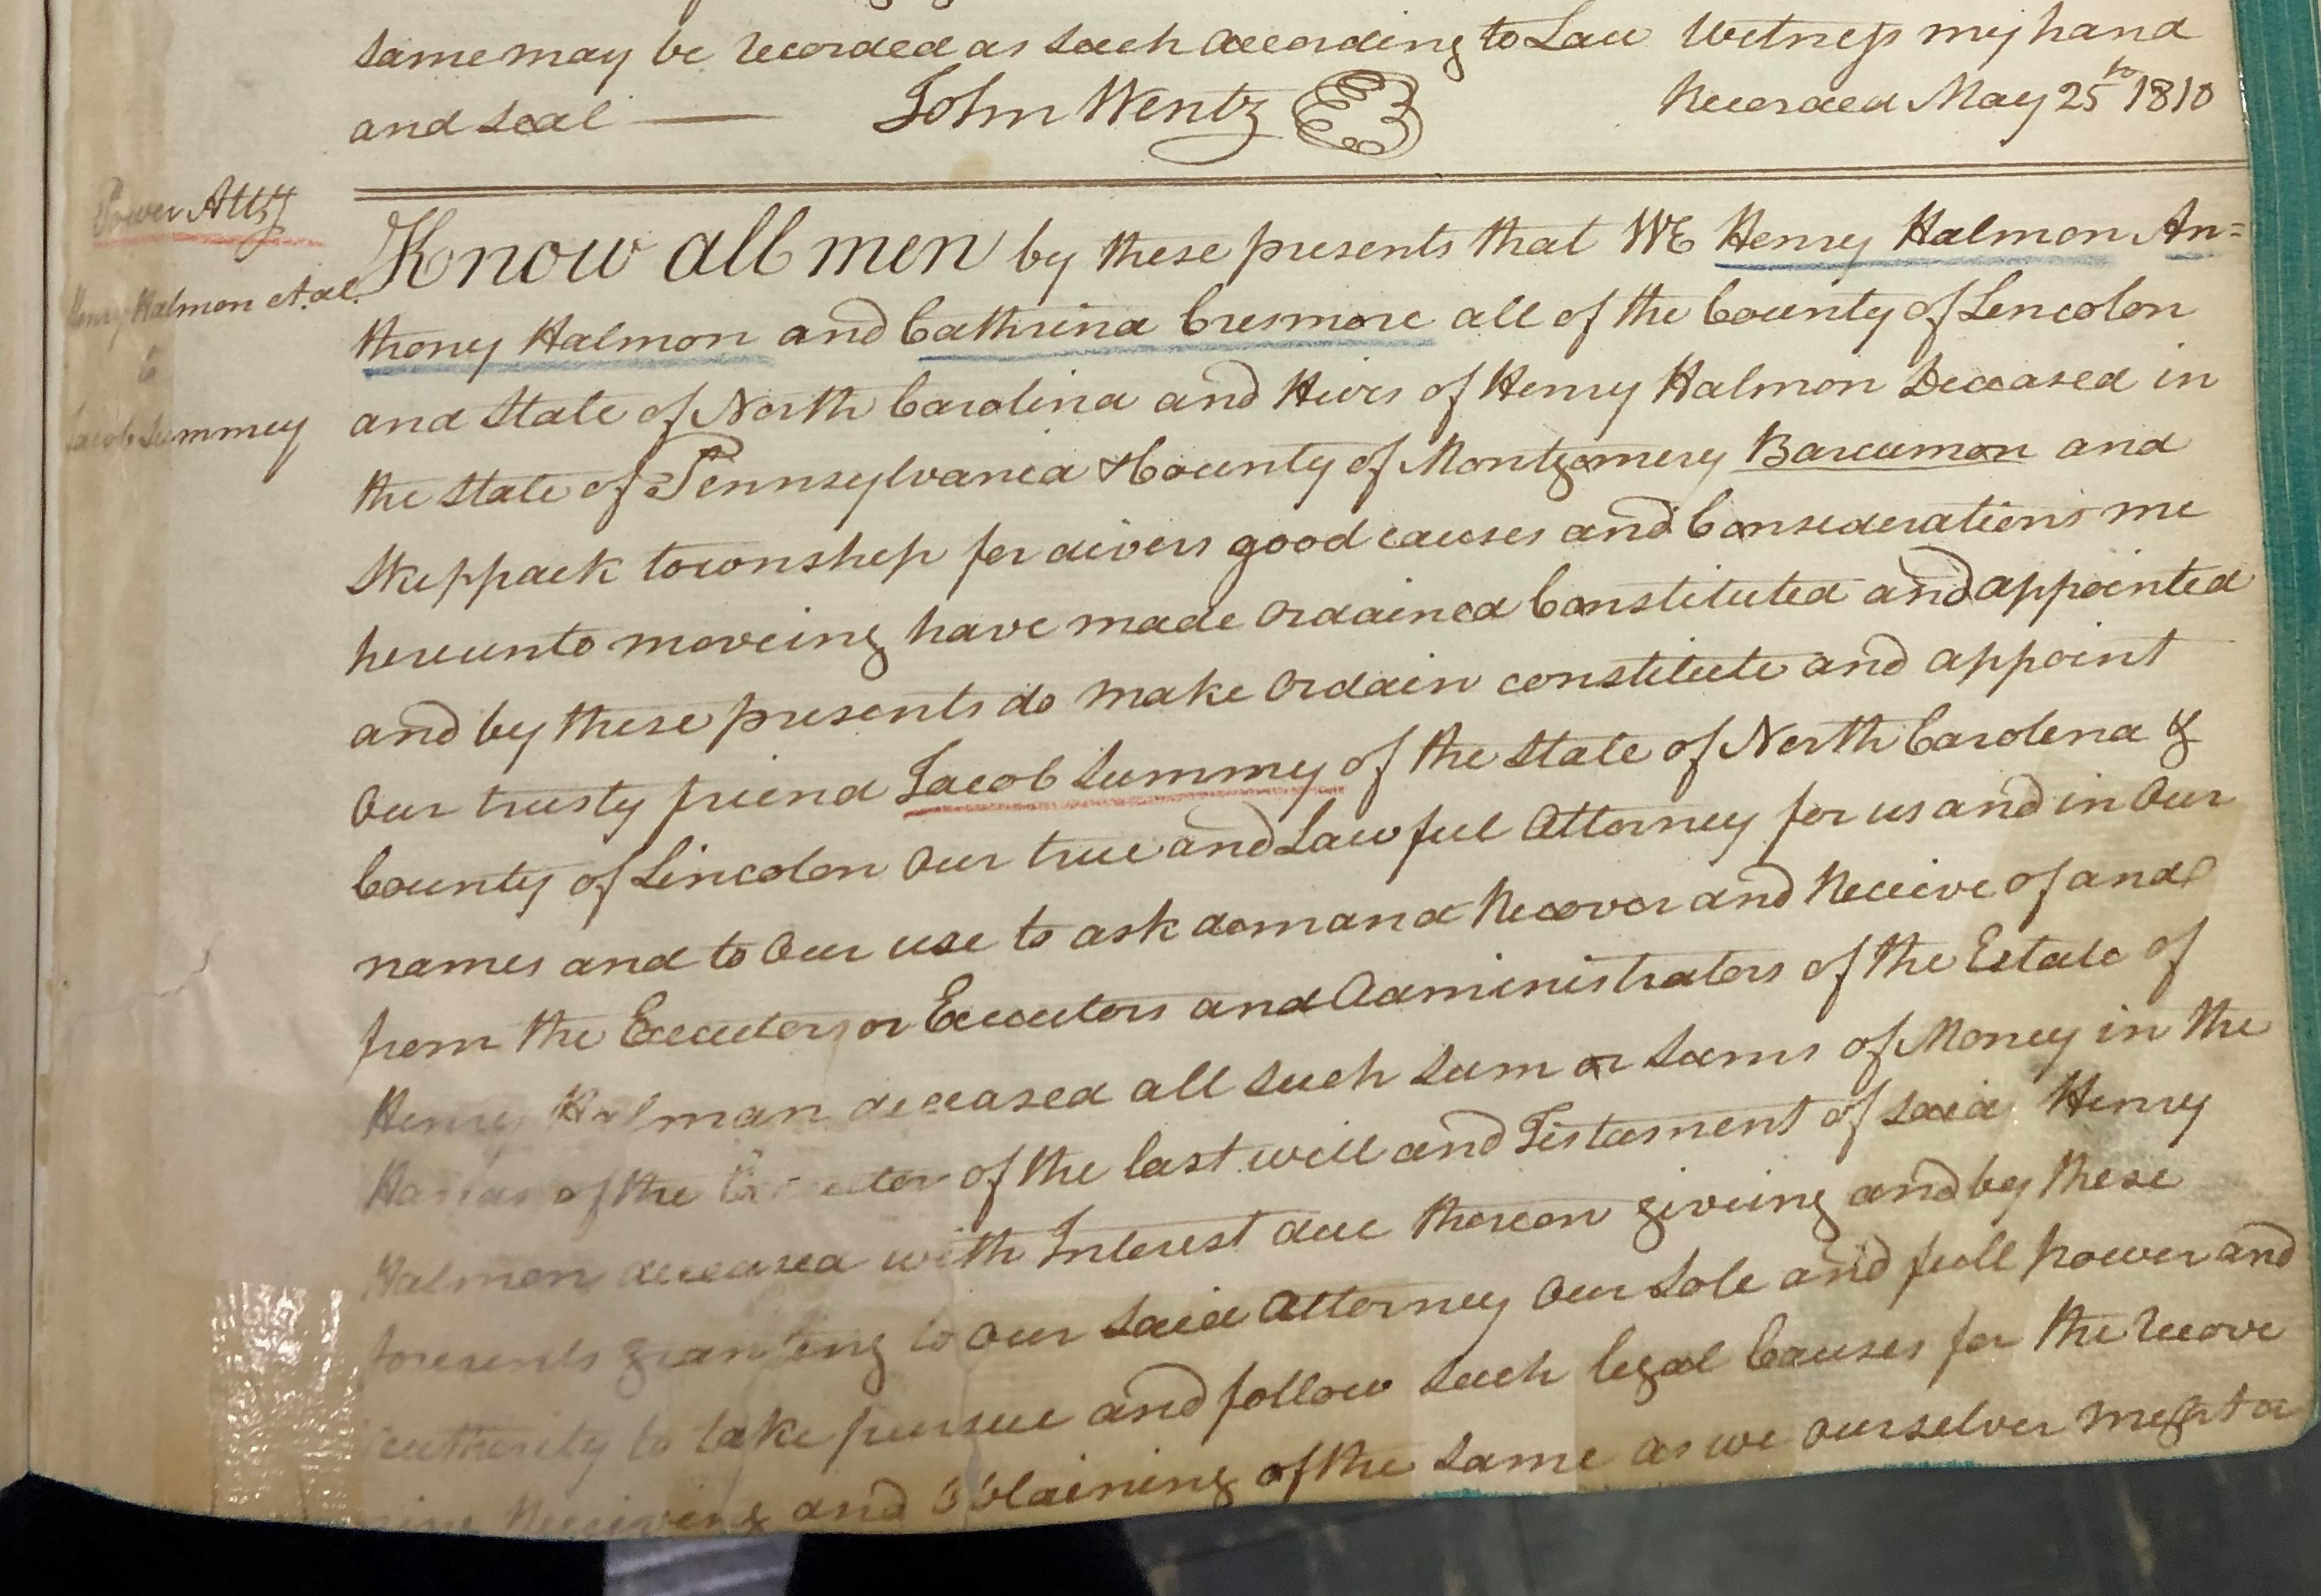 same may be recorded as such according to Law Witness my hand
and seal — John Wentz Recorded May 25th 1810
Power Atty
Henry Halmon et. al.
to
Jacob Summey
Know all men by these presents that WE Henry Halmon An=
thony Halmon and Cathrina Cresmore all of the County of Lincolon
and State of North Carolina and Heirs of Henry Halmon Deceased in
the State of Pennsylvania & County of Montgomery Barcumon and
Skippack township for divers good causes and Considerations me
hereunto moveing have made ordained Constituted and appointed
and by these presents do make ordain constitute and appoint
Our trusty friend Jacob Summy of the State of North Carolina &
County of Lincolon our true and Lawful Attorney for us and in Our
names and to Our use to ask demand Recover and Receive of and
from the Executors or Executors and Administrators of the Estate of
Henry Halman deceased all such sum or sums of Money in the
Hands of the Executor of the last will and Testament of said Henry
Halmon deceased with Interest due thereon giveing and by these
presents granting to our said Attorney Our Sole and full power and
authority to take pursue and follow such legal Causes for the Recove
Receiving and Obtaining of the same as we ourselves